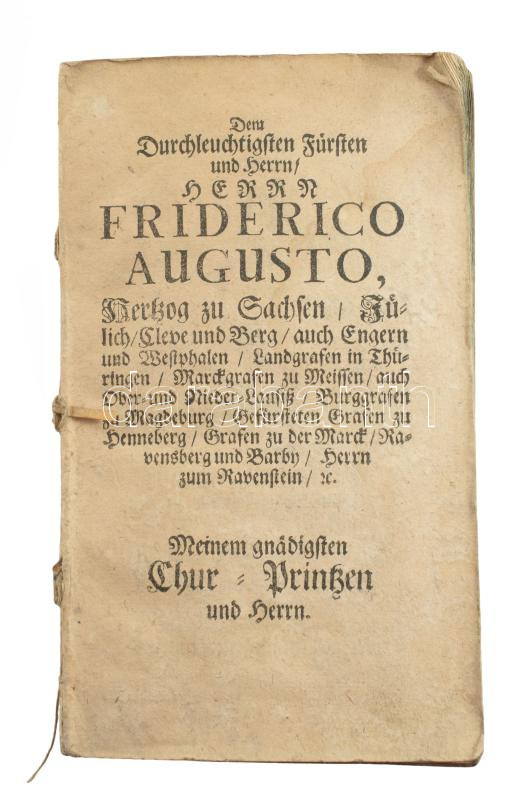 Dem
Durchleuchtigsten Fürsten
und Herrn/
HERRN
FRIDERICO
AUGUSTO,
Hertzog zu Sachsen / Jü-
lich/Cleve und Berg/auch Engern
und Westphalen / Landgrafen in Thü-
ringen / Marckgrafen zu Meissen/auch
Ober-und Nieder-Lausitz / Burggrafen
zu Magdeburg / Gefürsteten Grafen zu
Henneberg/ Grafen zu der Marck/Ra-
vensberg und Barby/ Herrn
zum Ravenstein/ ꝛc.
Meinem gnädigsten
Chur-Printzen
und Herrn.
darabanth